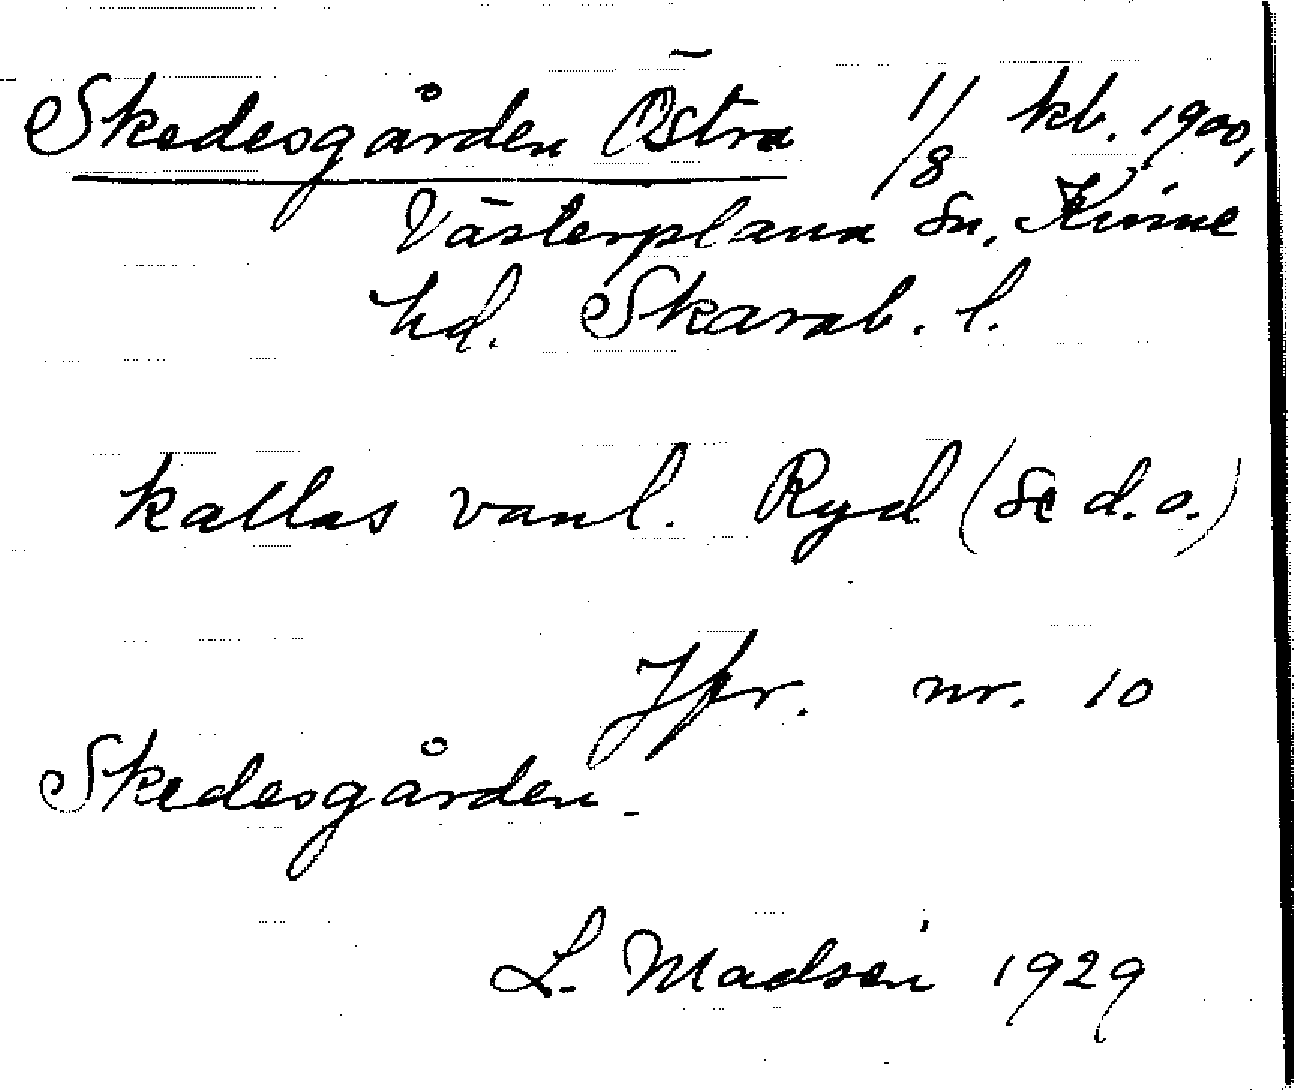 Skedesgården Östra 1/8 kb. 1900,
Västerplana Sn, Kinne
hd. Skarab. l.
kallas vanl. Ryd (se d.o.)
Jfr. nr. 10
Skedesgården.
L. Madsén 1929